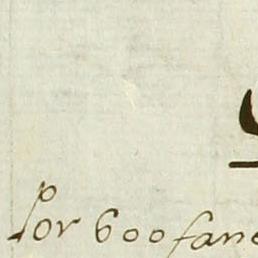 por 600 fane